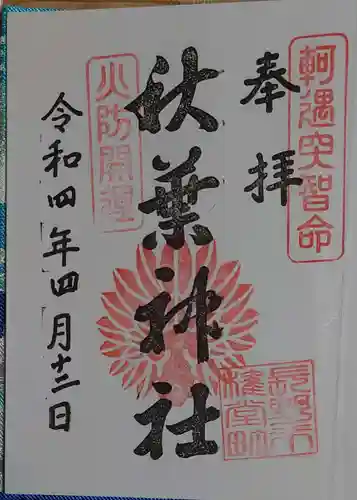 軻遇突智命
奉拝
秋葉神社
長野市
権堂町
火防開運
令和四年四月十二日